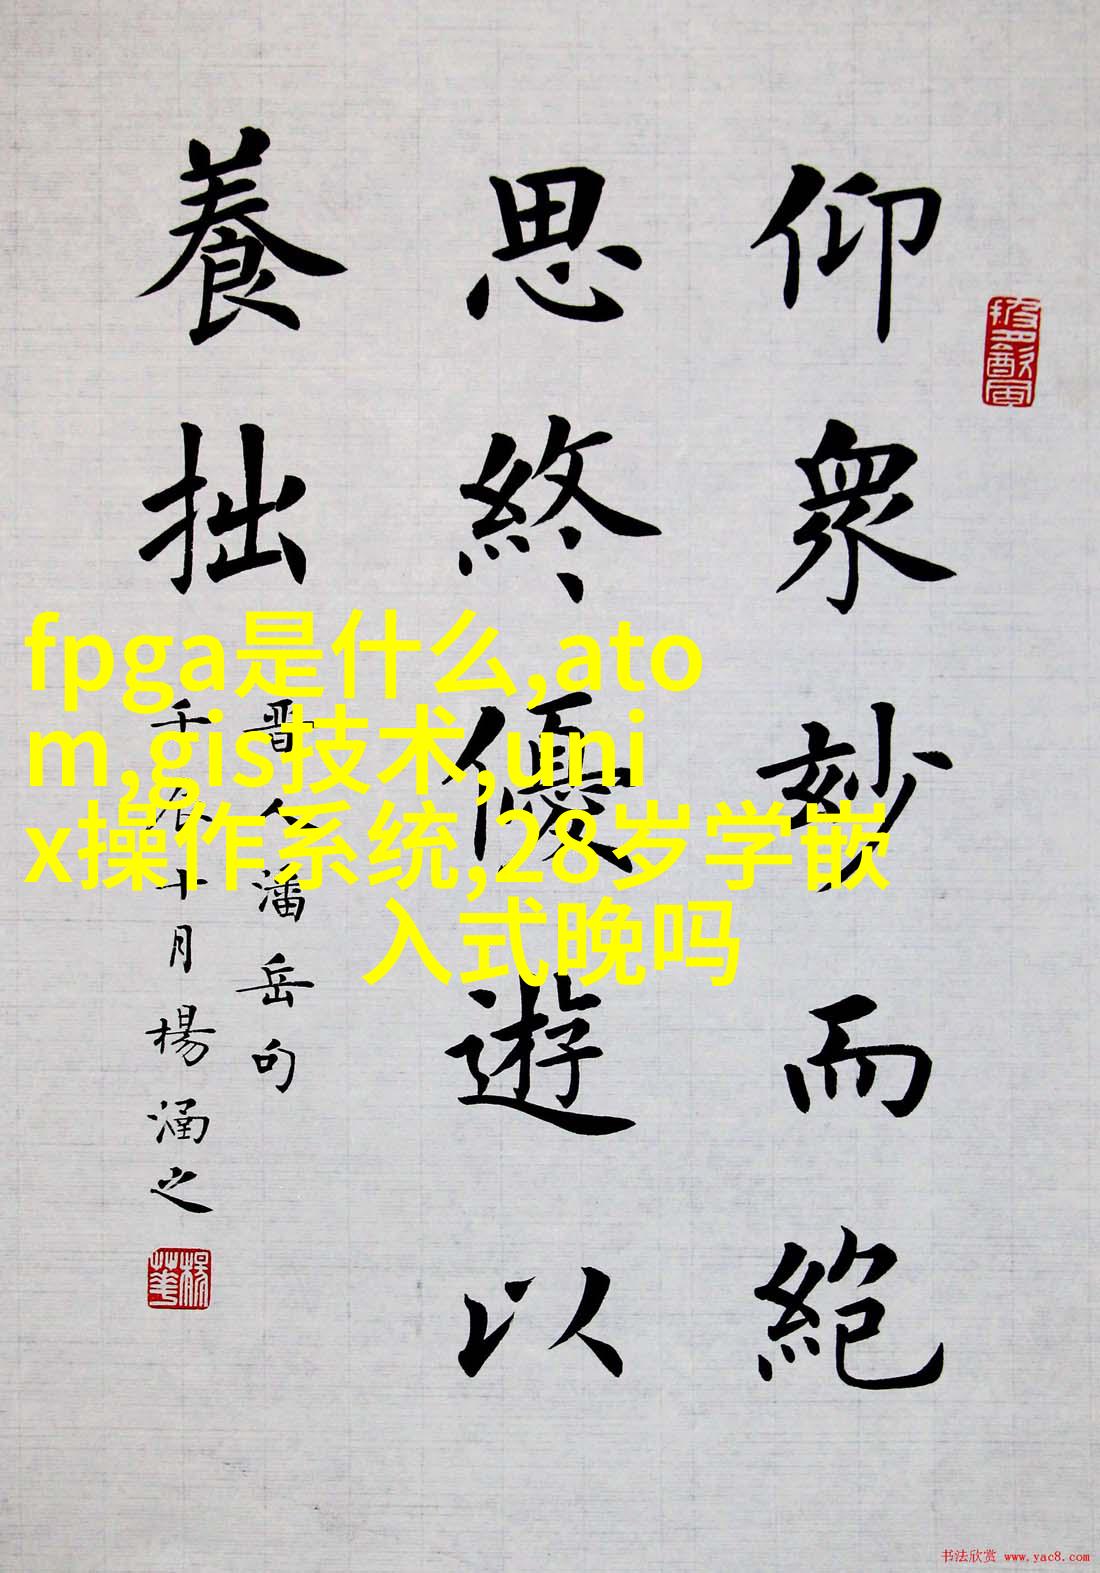 仰衆妙而絶
思終優遊以
養拙
晋人潘岳句
壬辰十月楊涵之
fpga是什么,ato
m,gis技术,uni
x操作系统,28岁学嵌
入式晚吗
书法欣赏 www.yac8.com